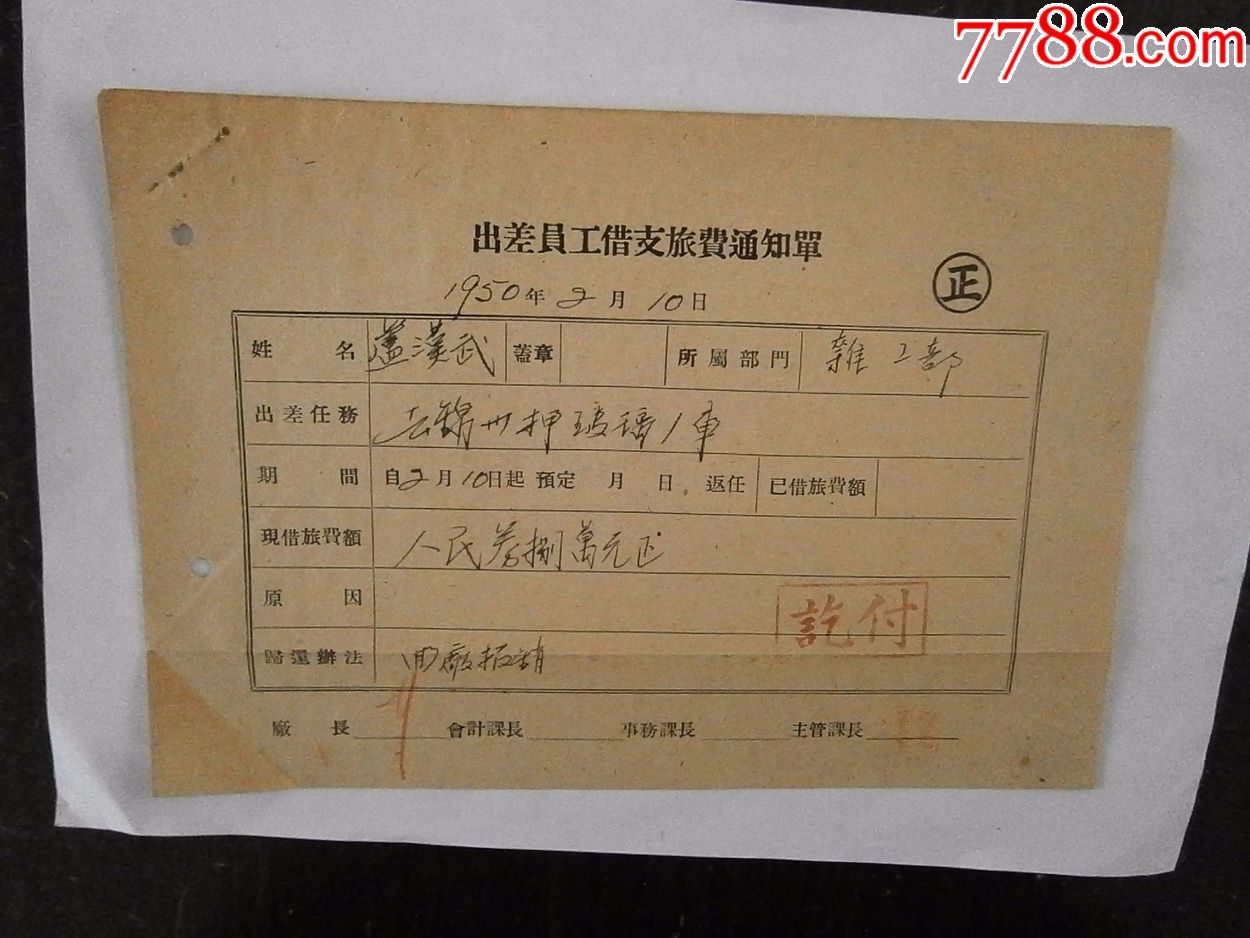 7788.com
出差員工借支旅費通知單
正
1950年2月10日
姓名 蘆漢武 蓋章 所屬部門 雜工部
出差任務 去錦州押玻璃1車
期間 自2月10日起 預定 月 日 返任 已借旅費額
現借旅費額 人民券捌萬元正
原因
訖付
歸還辦法 回廠报销
廠長 會計課長 事務課長 主管課長